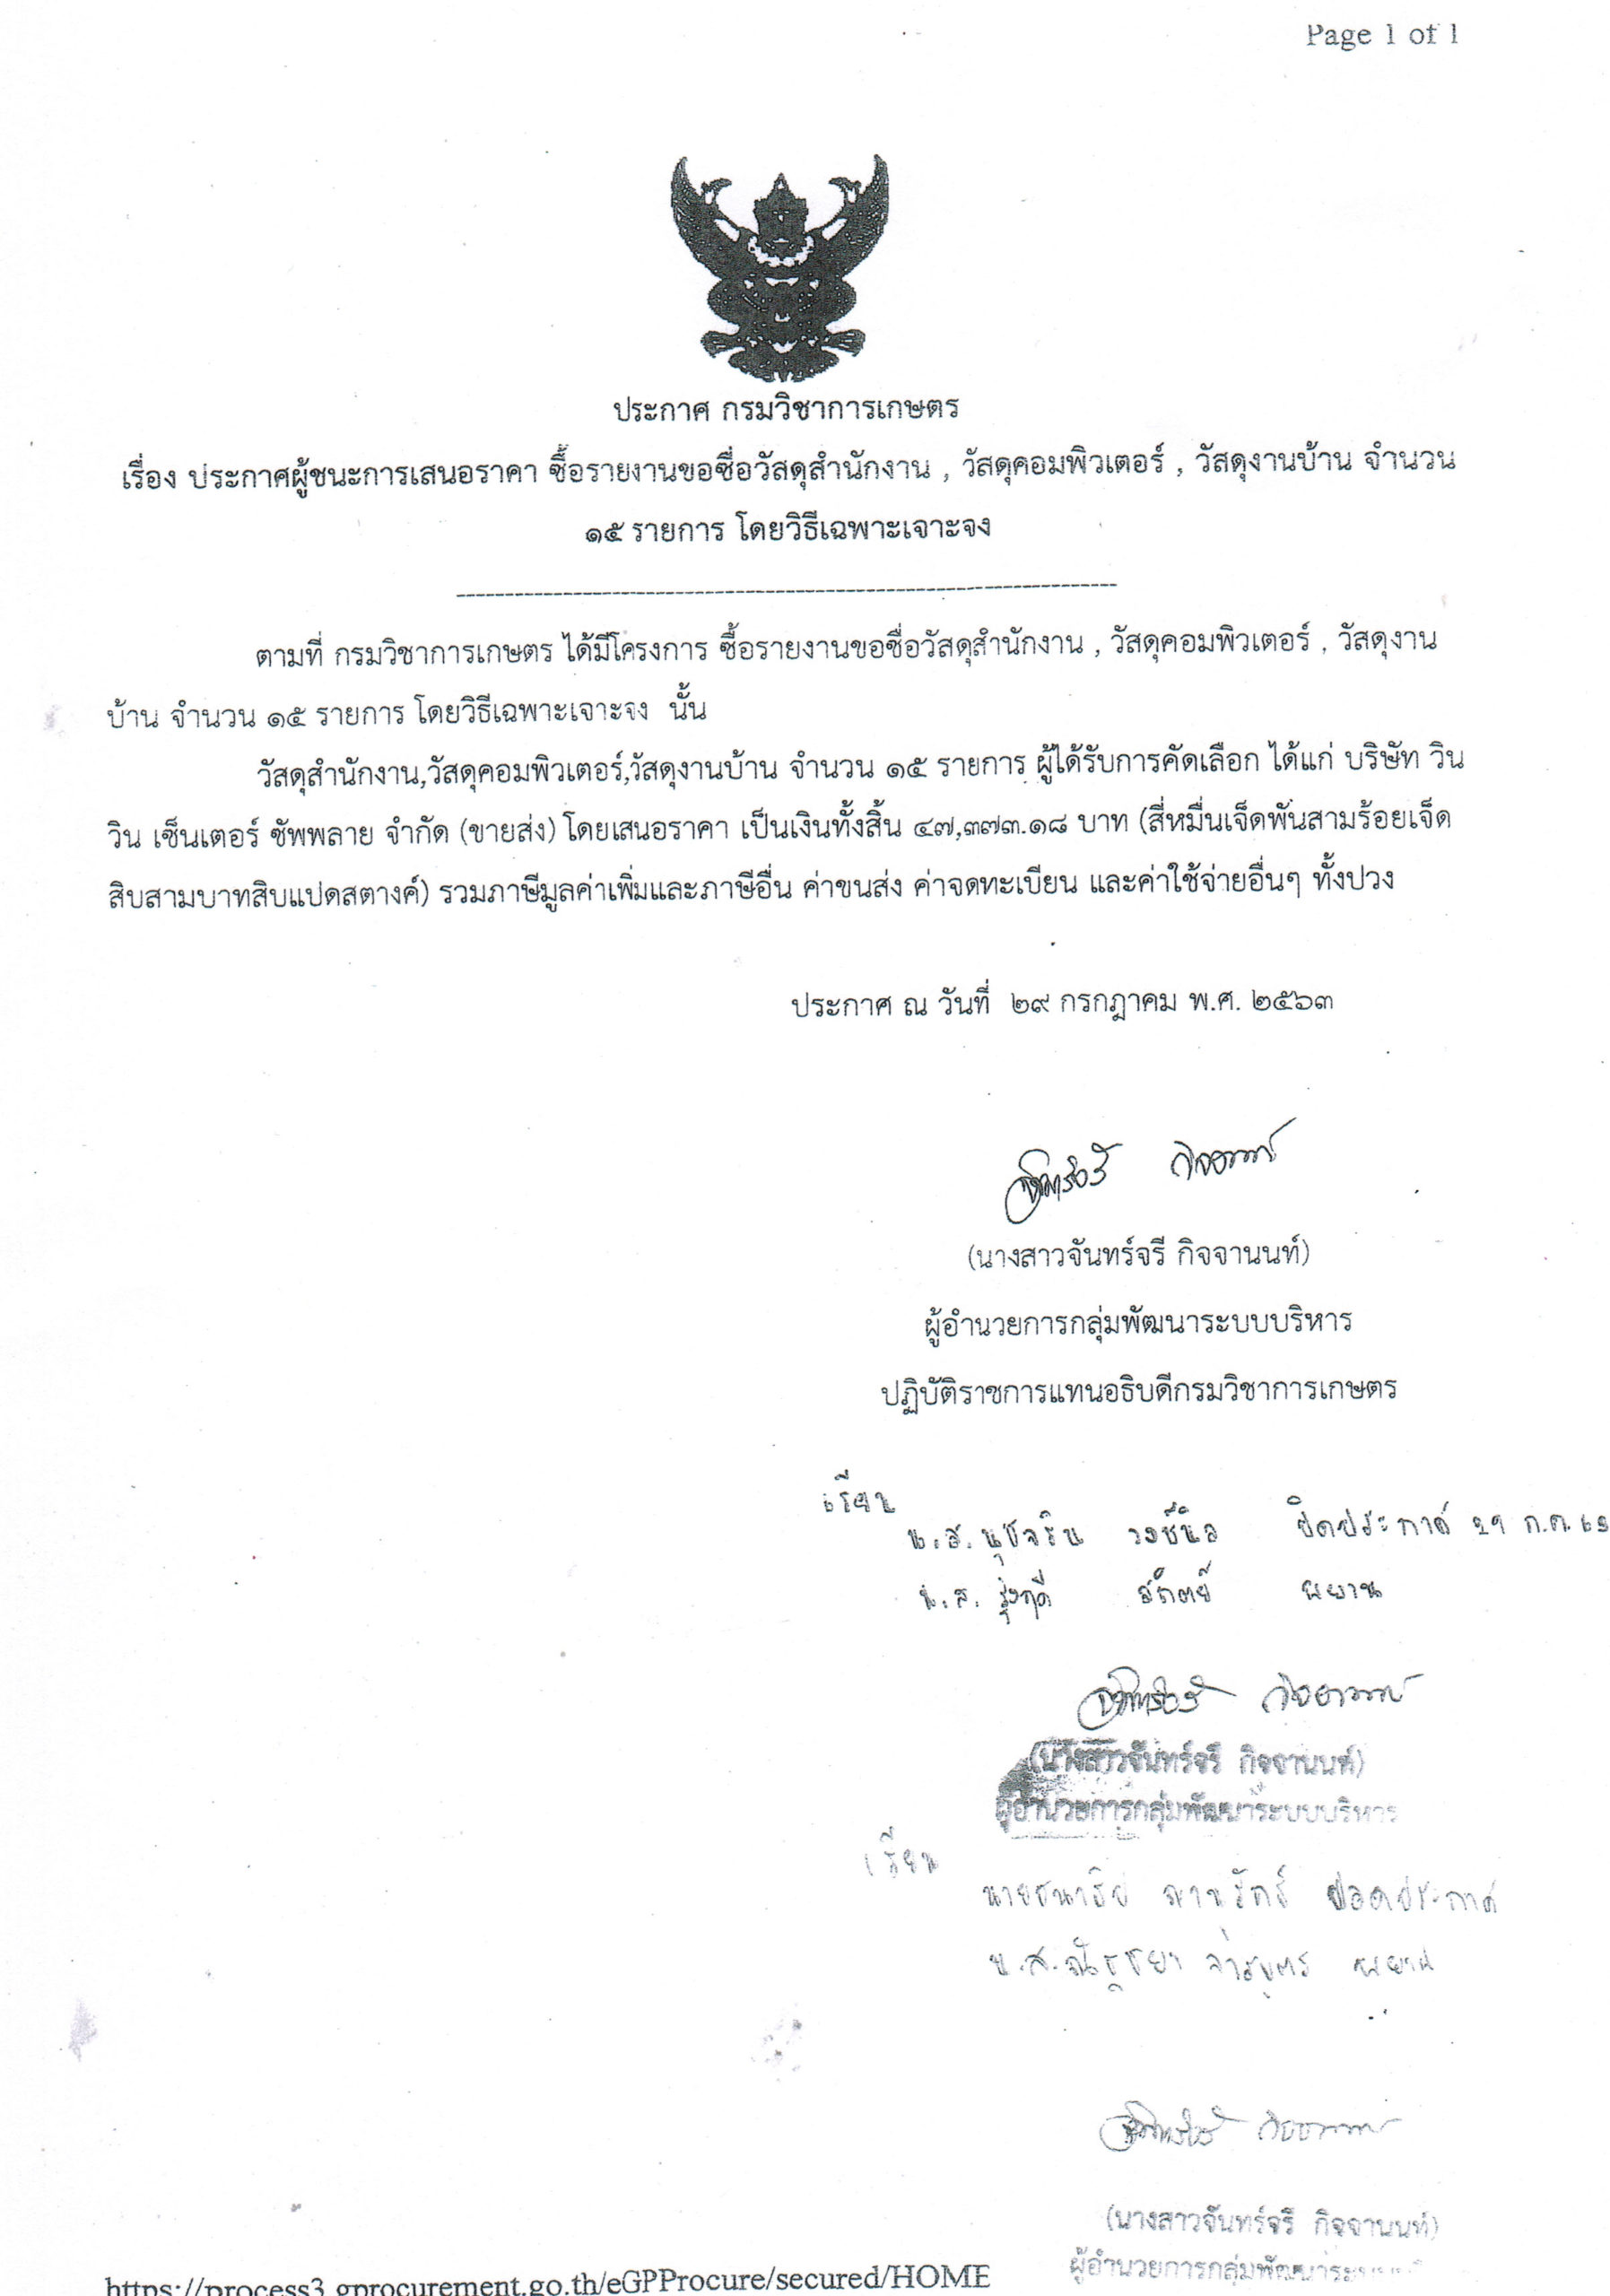 Page 1 of 1
ประกาศ กรมวิชาการเกษตร
เรื่อง ประกาศผู้ชนะการเสนอราคา ซื้อรายงานขอซื่อวัสดุสำนักงาน , วัสดุคอมพิวเตอร์ , วัสดุงานบ้าน จำนวน
๑๕ รายการ โดยวิธีเฉพาะเจาะจง
ตามที่ กรมวิชาการเกษตร ได้มีโครงการ ซื้อรายงานขอซื่อวัสดุสำนักงาน , วัสดุคอมพิวเตอร์ , วัสดุงาน
บ้าน จำนวน ๑๕ รายการ โดยวิธีเฉพาะเจาะจง นั้น
วัสดุสำนักงาน,วัสดุคอมพิวเตอร์,วัสดุงานบ้าน จำนวน ๑๕ รายการ ผู้ได้รับการคัดเลือก ได้แก่ บริษัท วิน
วิน เซ็นเตอร์ ซัพพลาย จำกัด (ขายส่ง) โดยเสนอราคา เป็นเงินทั้งสิ้น ๔๗,๓๗๓.๑๘ บาท (สี่หมื่นเจ็ดพันสามร้อยเจ็ด
สิบสามบาทสิบแปดสตางค์) รวมภาษีมูลค่าเพิ่มและภาษีอื่น ค่าขนส่ง ค่าจดทะเบียน และค่าใช้จ่ายอื่นๆ ทั้งปวง
ประกาศ ณ วันที่ ๒๙ กรกฎาคม พ.ศ. ๒๕๖๓
(นางสาวจันทร์จรี กิจจานนท์)
ผู้อำนวยการกลุ่มพัฒนาระบบบริหาร
ปฏิบัติราชการแทนอธิบดีกรมวิชาการเกษตร
เรียน
น.ส. นุชจริน ปิดประกาศ 29 ก.ค. 63
น.ส. รุ่งฤดี พยาน
(นางสาวจันทร์จรี กิจจานนท์)
ผู้อำนวยการกลุ่มพัฒนาระบบบริหาร
เรียน
ปลดประกาศ
น.ส. พยาน
(นางสาวจันทร์จรี กิจจานนท์)
ผู้อำนวยการกลุ่มพัฒนาระบบ
https://process3.gprocurement.go.th/eGPProcure/secured/HOME